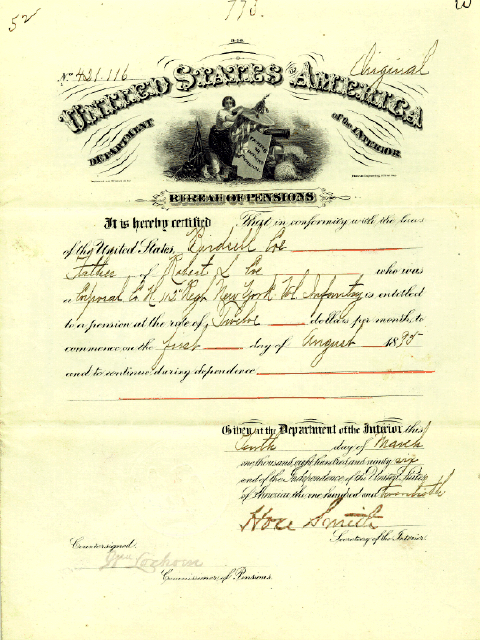 52
773.
3-110
No. 421.116
Original
UNITED STATES OF AMERICA
DEPARTMENT of the INTERIOR
BUREAU OF PENSIONS
It is hereby certified That in conformity with the laws
of the United States, Coe
Father of Robert L Coe who was
a Corporal Co. K 112" Regt New York Vol Infantry is entitled
to a pension at the rate of Twelve dollars per month, to
commence on the first day of August 1895
and to continue during dependence
Given at the Department of the Interior this
Tenth day of March
one thousand eight hundred and ninety six
and of the Independence of the United States
of America the one hundred and twentieth
Hoke Smith
Secretary of the Interior.
Countersigned.
Wm Lochren
Commissioner of Pensions.